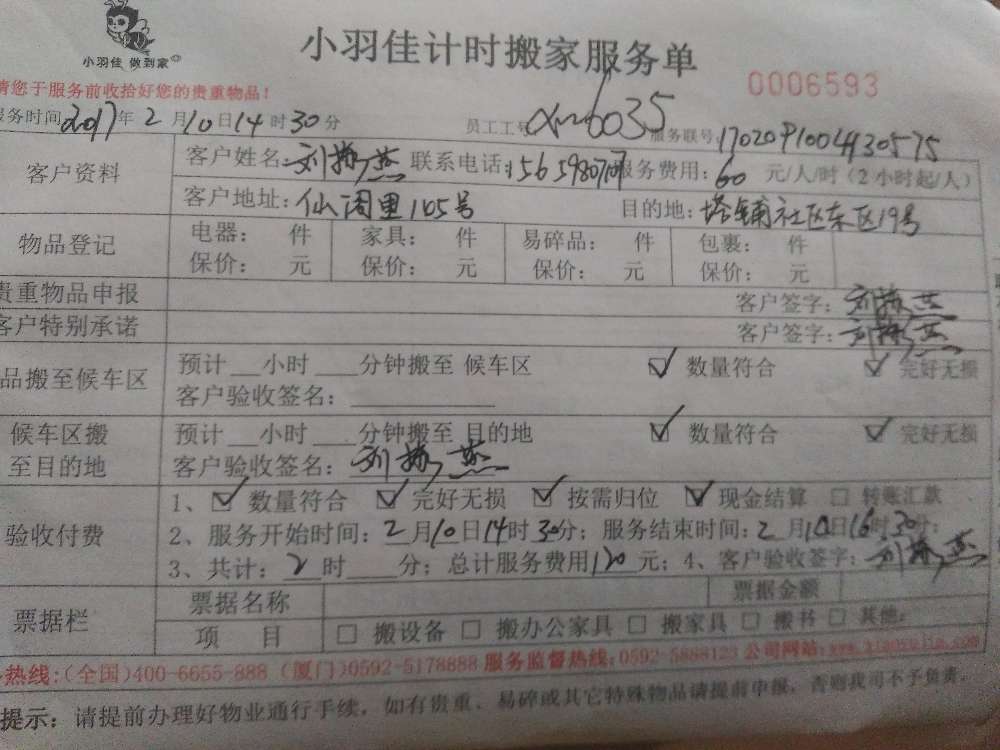 小羽佳 做到家
小羽佳计时搬家服务单
0006593
请您于服务前收拾好您的贵重物品！
服务时间 2017年2月10日14时30分 员工工号 xm6035 服务联号:
客户资料
客户姓名: 刘 燕 联系电话: 服务费用: 60 元/人/时（2小时起/人）
客户地址: 仙阁里105号 目的地: 塔铺社区东区19号
物品登记
电器: 件 家具: 件 易碎品: 件 包裹: 件
保价: 元 保价: 元 保价: 元 保价: 元
贵重物品申报 客户签字: 刘 燕
客户特别承诺 客户签字: 刘 燕
品搬至候车区
预计___小时___分钟搬至 候车区 ☑ 数量符合 ☑ 完好无损
客户验收签名:
候车区搬至目的地
预计___小时___分钟搬至 目的地 ☑ 数量符合 ☑ 完好无损
客户验收签名: 刘 燕
验收付费
1、☑ 数量符合 ☑ 完好无损 ☑ 按需归位 ☑ 现金结算 □ 转账汇款
2、服务开始时间: 2月10日14时30分; 服务结束时间: 2月10日16时30分;
3、共计: 2时___分; 总计服务费用120元; 4、客户验收签字: 刘 燕
票据栏
票据名称 票据金额
项 目 □ 搬设备 □ 搬办公家具 □ 搬家具 □ 搬书 □ 其他:
热线:(全国)400-6655-888 (厦门)0592-5178888 服务监督热线:0592-5888123 公司网站:
提示: 请提前办理好物业通行手续, 如有贵重、易碎或其它特殊物品请提前申报, 否则我司不予负责。